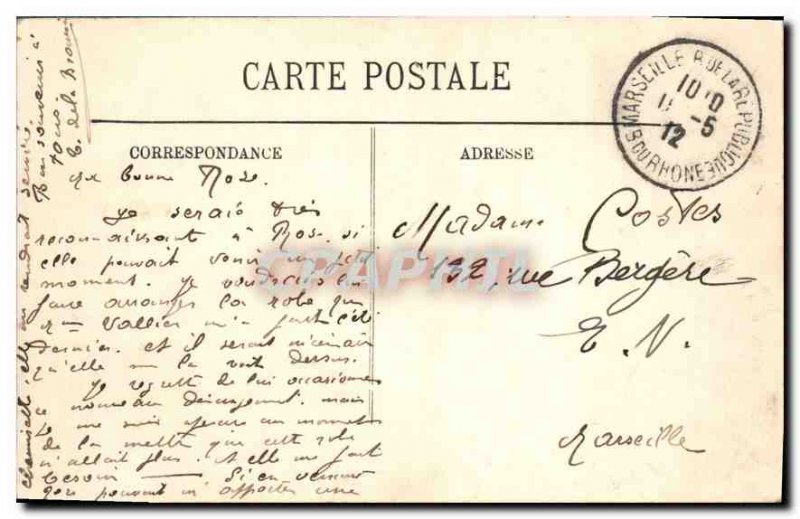 CARTE POSTALE
CORRESPONDANCE
ADRESSE
MARSEILLE R. DE LA REPUBLIQUE
10
5
12
BDU RHONE
Ma bonne Rose.
Je serais très
reconnaissant à Rose si
elle pouvait venir un
moment. Je voudrais lui
faire arranger la robe que
Mme Vallier m'a fait l'été
dernier. et il serait nécessaire
qu'elle me la voit dessus.
Je regrette de lui occasionner
ce nouveau dérangement. mais
je me suis aperçue au moment
de la mettre que cette robe
n'allait plus. et elle me fait
besoin Si en venant
Rose pouvait m'apporter une
elle me rendrait service.
Bon souvenir à
tous
Madame Costes
132, rue Bergère
E. V.
Marseille
CPAPHIL